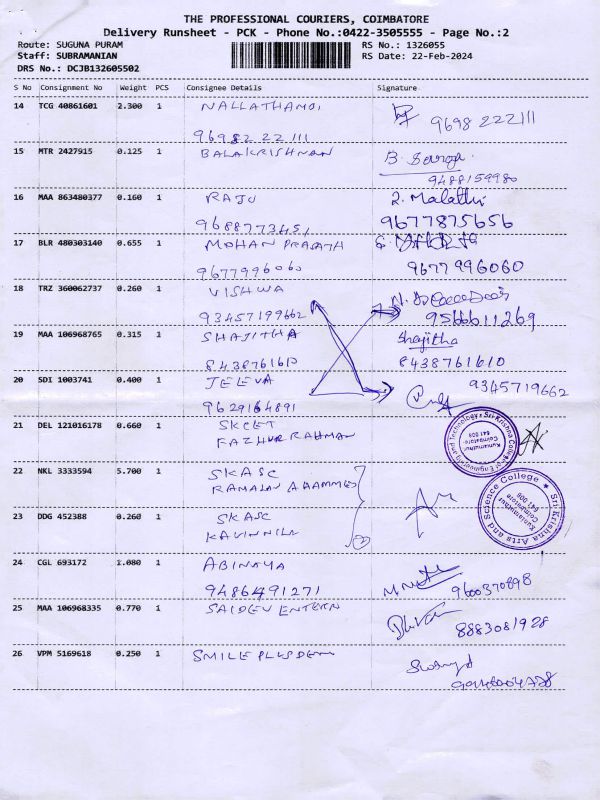 THE PROFESSIONAL COURIERS, COIMBATORE
Delivery Runsheet - PCK - Phone No.:0422-3505555 - Page No.:2
Route: SUGUNA PURAM
RS No.: 1326055
Staff: SUBRAMANIAN
RS Date: 22-Feb-2024
DRS No.: DCJB132605502
S No Consignment No Weight PCS Consignee Details Signature
14 TCG 40861601 2.300 1 NALLATHAMBI
96982 22 111 9698 222111
15 MTR 2427915 0.125 1 BALAKRISHNAN B. Saroja
9488159980
16 MAA 863480377 0.160 1 RAJU Malathi
9688773451 9677875656
17 BLR 480303140 0.655 1 MOHAN PRASATH
9677996060 9677996060
18 TRZ 360062737 0.260 1 VISHWA
93457199662 9566611269
19 MAA 106968765 0.315 1 SHAJITHA Shajitha
8438761610 8438761610
20 SDI 1003741 0.400 1 JEEVA 9345719662
9629164891
21 DEL 121016178 0.660 1 SKCET
FAZHUR RAHMAN
Sri Krishna College of Engineering and Technology
Kuniamuthur
Coimbatore
641 008
22 NKL 3333594 5.700 1 SKASC
Sri Krishna Arts and Science College
Kuniamuthur
Coimbatore
641 008
23 DDG 452388 0.260 1 SKASC
24 CGL 693172 1.080 1 ABINAYA
9486491271 9600370898
25 MAA 106968335 0.770 1 SAIDEV ENTERN
8883081928
26 VPM 5169618 0.250 1 SMILE PLUS DEN